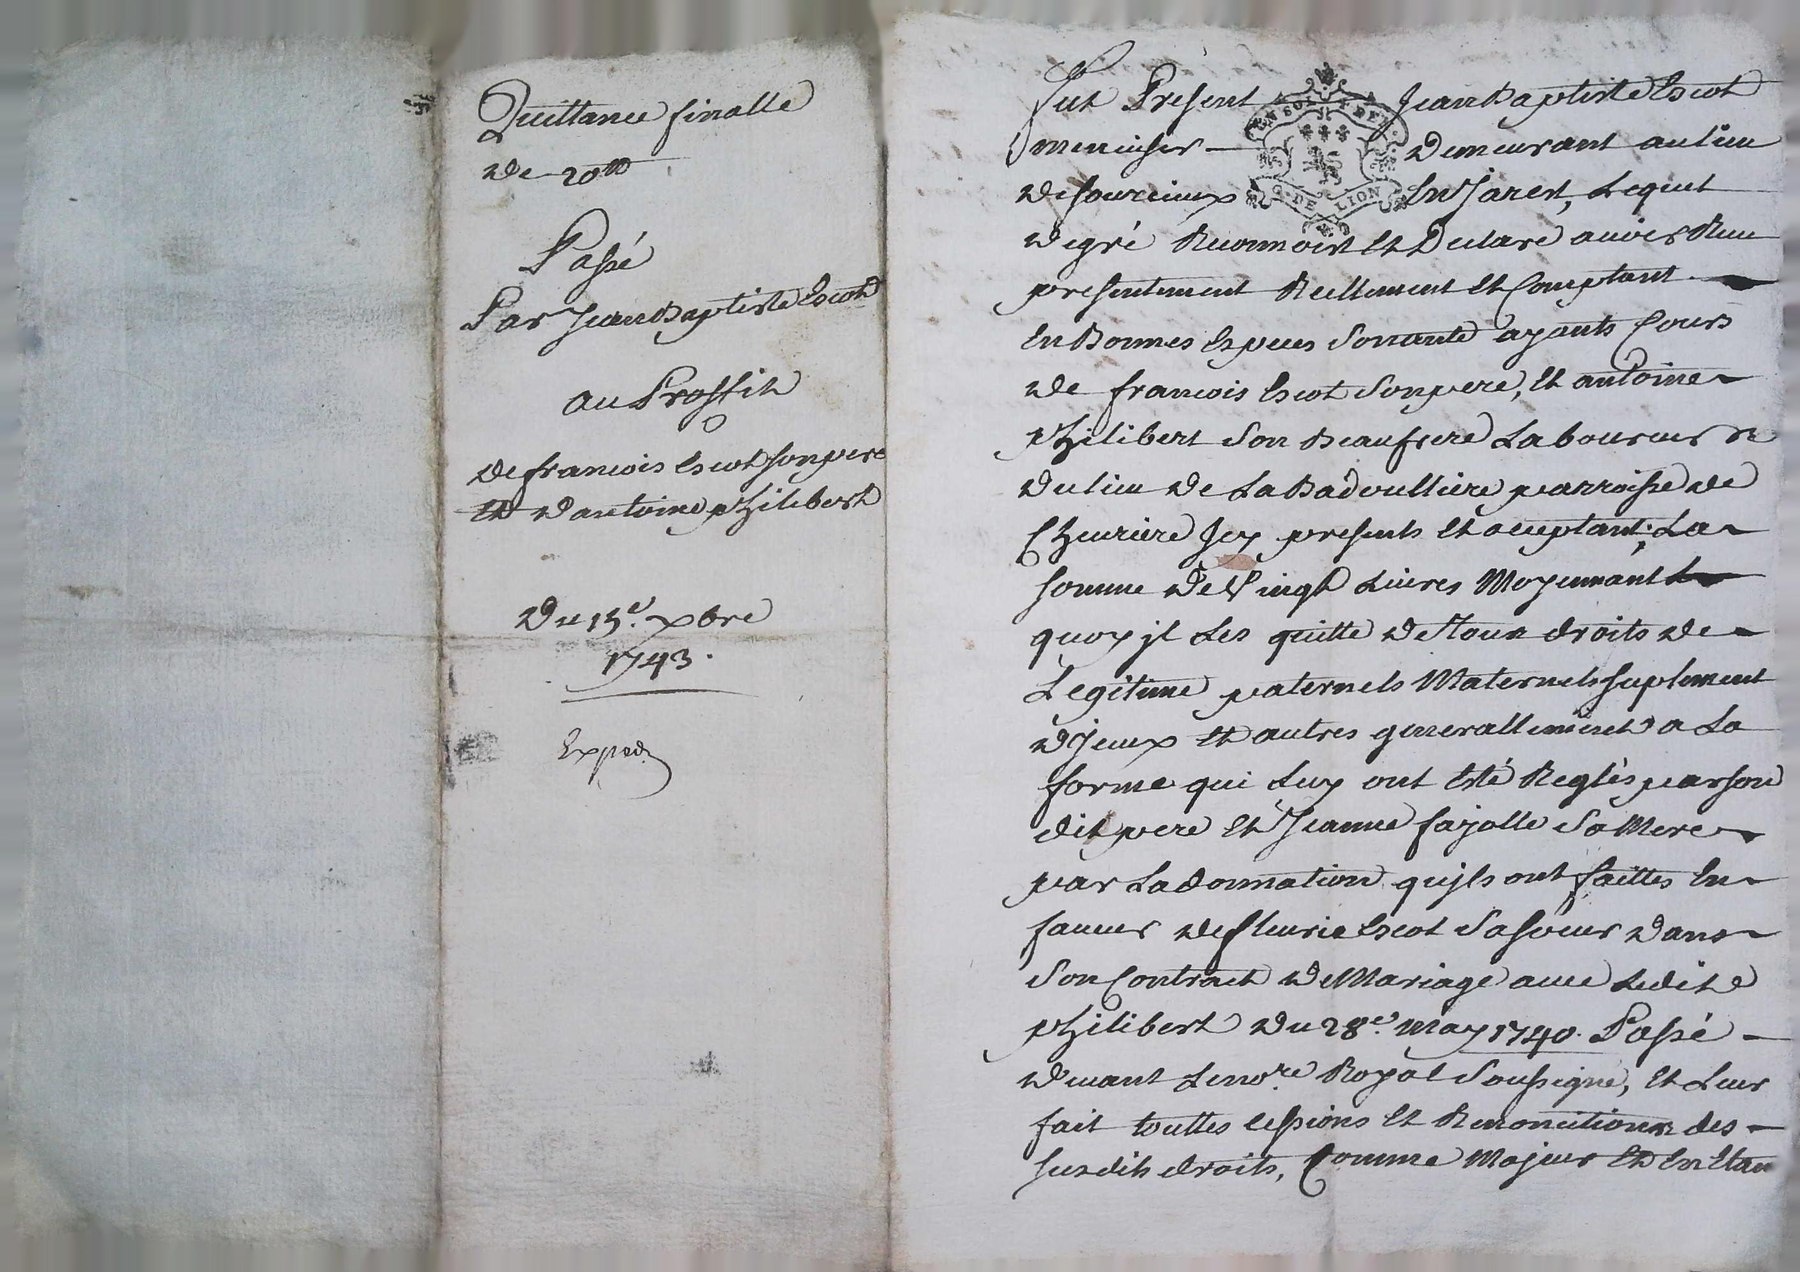 Quittance finalle
de 20tt
Passé
Par Jean Baptiste Escot
au Proffit
de francois Escot son pere
et d'antoine philibert
Du 15e. xbre
1743.
Exped
Fut Présent Jean Baptiste Escot
menuiser demeurant au lieu
de sourcieux En Jarest, Lequel
de gré Reconnoist et declare avoir Receu
presentement Reellement et Comptant
En Bonnes Especes Sonante ayants Cours
de francois Escot Son pere, et antoine
philibert Son Beaufrere Laboureur
du lieu de La Badoulliere parroisse de
Chevriere Jcy presents et acceptant; La
somme de Vingt Livres Moyennant
quoy jl Les quitte de Tous droits de
Legitime paternels Maternels suplement
d'jceux et autres generallement a La
forme qui Luy ont Esté Reglés par son
dit pere et Jeanne fayolle Sa Mere
par La donnation qu'jls ont faittes En
faveur de fleurie Escot Sa soeur dans
Son Contract de Mariage avec Ledit
philibert du 28e. may 1740. Passé
devant Le nore. Royal Soussigné, et Leur
fait touttes cessions et Remonitions des
susdits droits, Comme Majeur et En Etat
EN SOL FER
G. DE LION